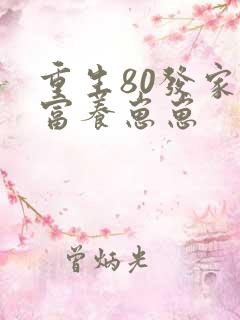 重生80發家
富養崽崽
曾炳光